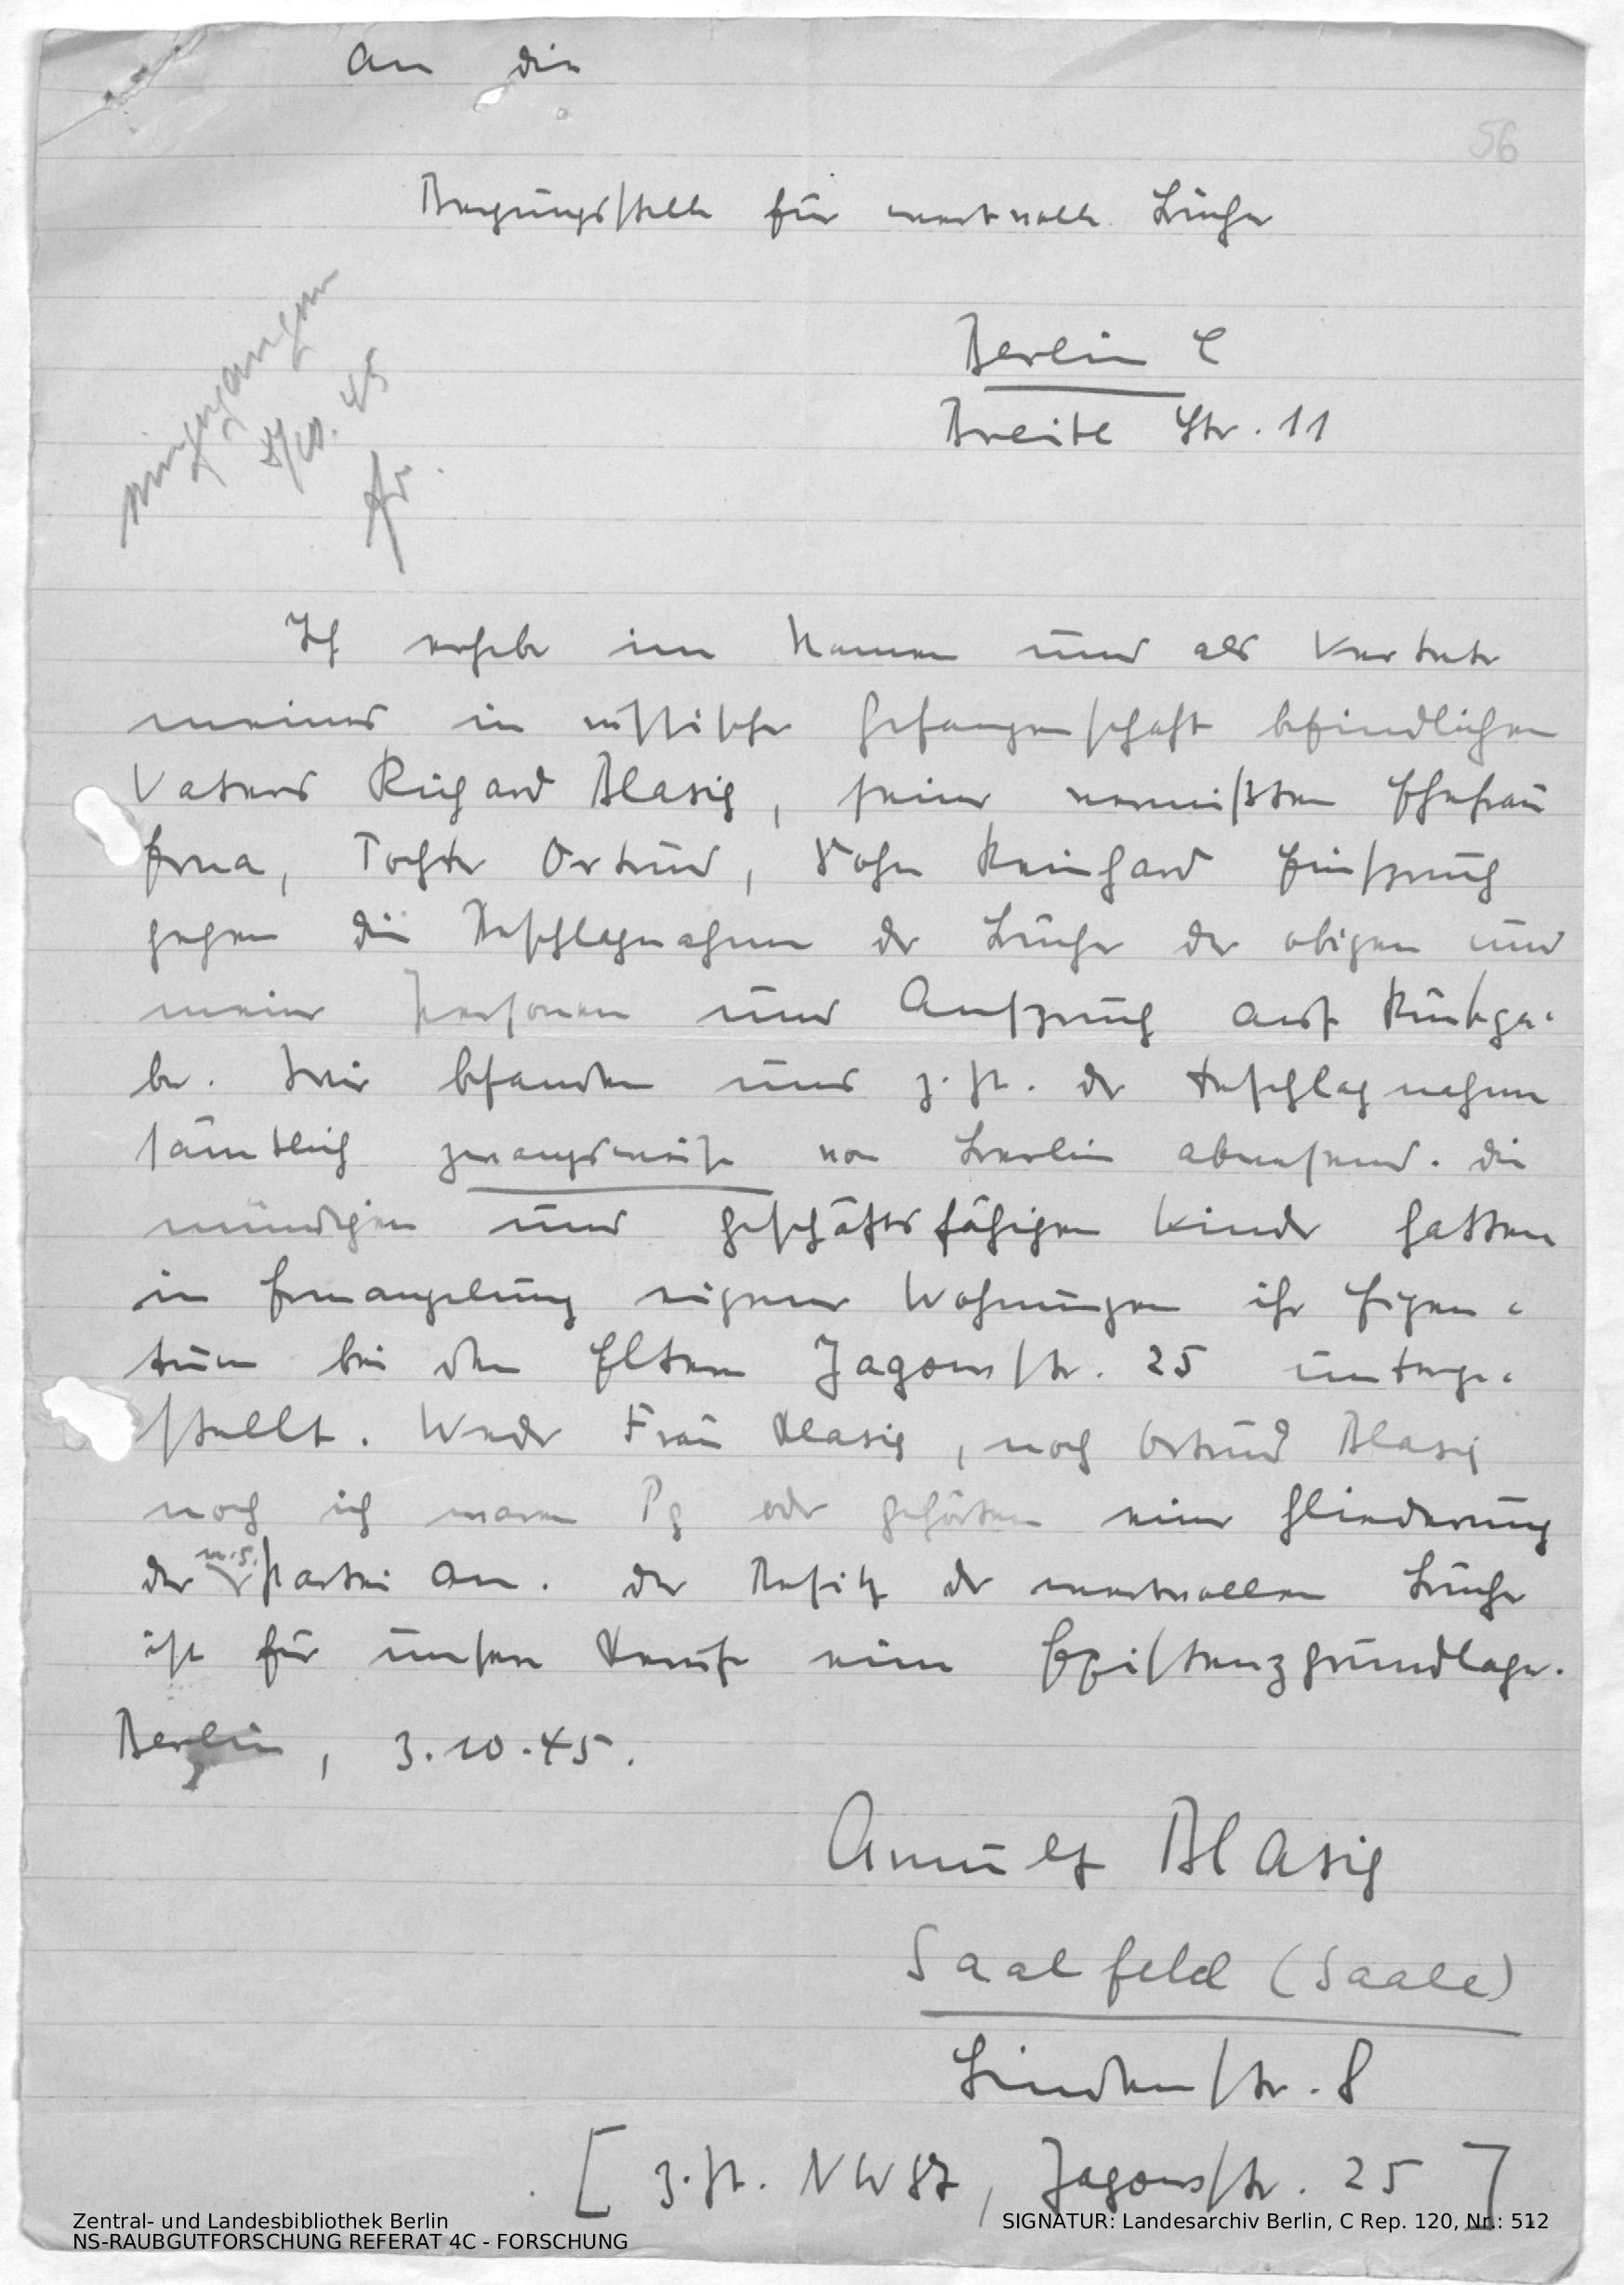 An die
56
Bergungsstelle für wertvolle Bücher
Berlin C
Breite Str. 11
eingegangen
5/10. 45
Ich erhebe im Namen und als Vertreter
meines in russischer Gefangenschaft befindlichen
Vaters Richard Blasig, seiner vermißten Ehefrau
Erna, Tochter Ortrud, Sohn Reinhard Einspruch
gegen die Beschlagnahme der Bücher der obigen und
meiner Personen und Anspruch auf Rückga-
be. Wir befanden uns z. Zt. der Beschlagnahme
sämtlich zwangsweise von Berlin abwesend. Die
mündigen und geschäftsfähigen Kinder hatten
in Ermangelung eigener Wohnungen ihr Eigen-
tum bei den Eltern Jagowstr. 25 unterge-
stellt. Weder Frau Blasig, noch Ortrud Blasig
noch ich waren Pg oder gehörten einer Gliederung
der n.s. Partei an. Der Besitz der wertvollen Bücher
ist für unsere Berufe eine Existenzgrundlage.
Berlin, 3.10.45.
Arnulf Blasig
Saalfeld (Saale)
Lindenstr. 8
[z. Zt. NW 87, Jagowstr. 25]
Zentral- und Landesbibliothek Berlin
NS-RAUBGUTFORSCHUNG REFERAT 4C - FORSCHUNG
SIGNATUR: Landesarchiv Berlin, C Rep. 120, Nr.: 512